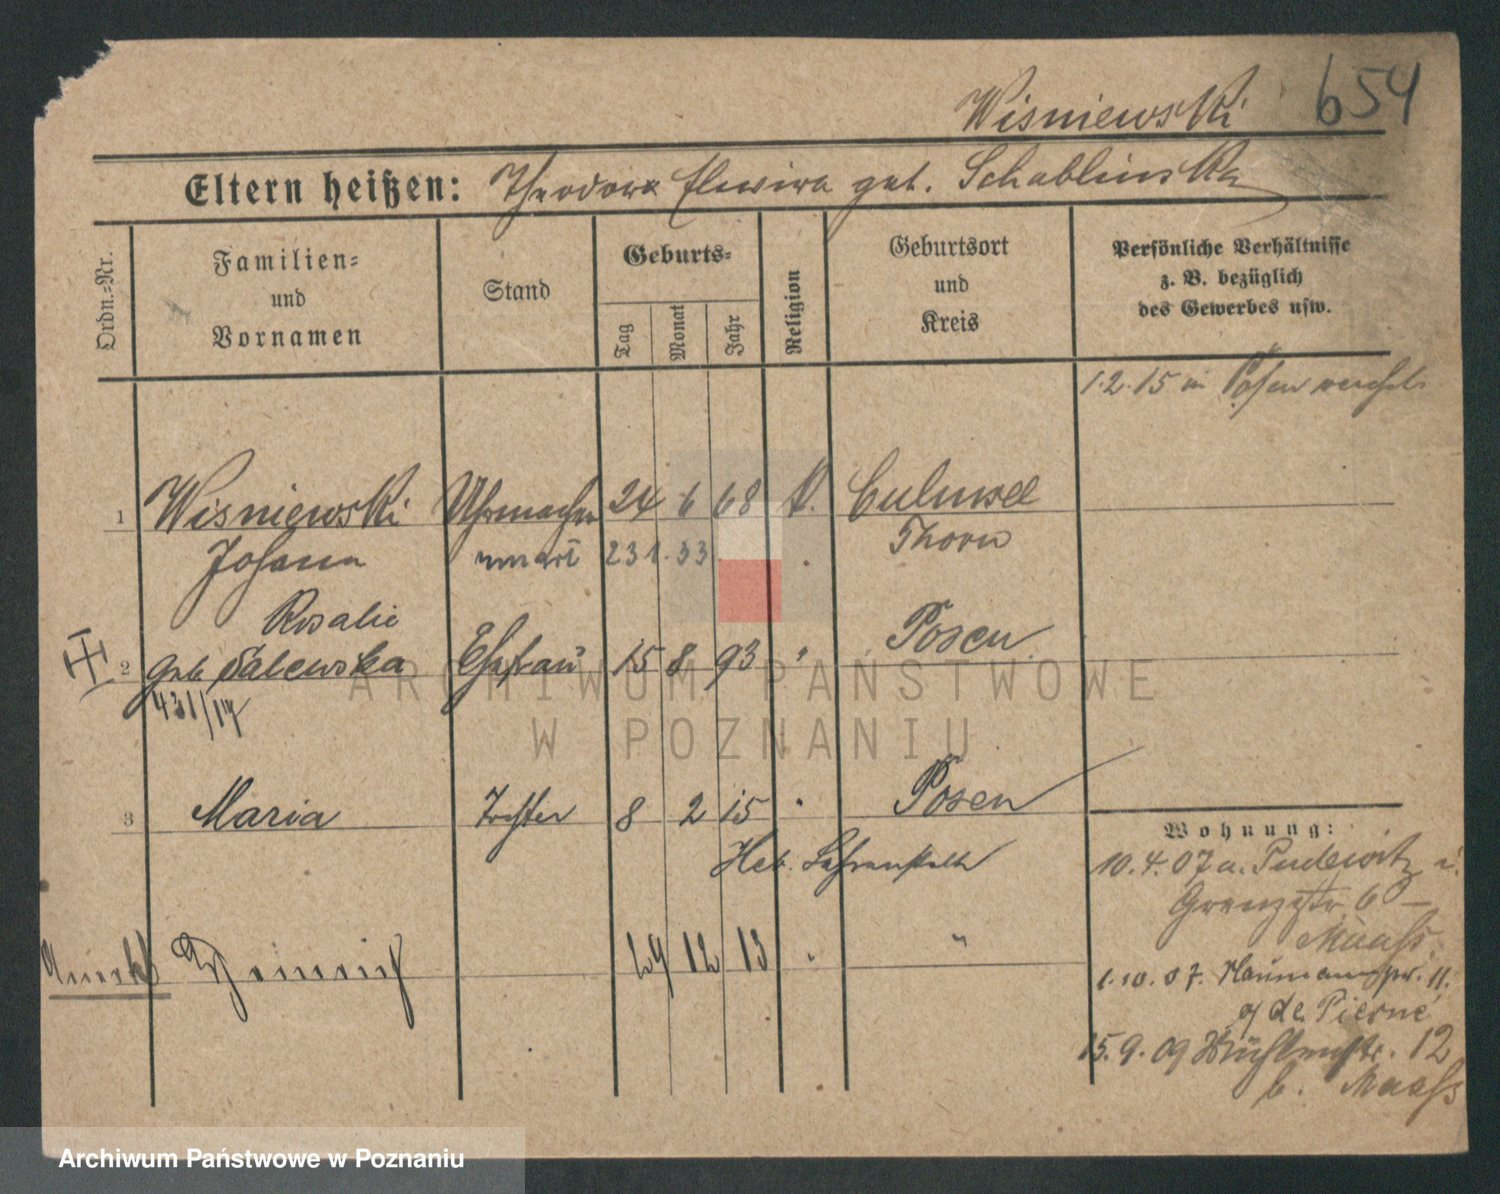 Wisniewski 654
Eltern heißen: Theodor Elwira geb. Schablinska
Ordn.-Nr.
Familien-
und
Vornamen
Stand
Geburts-
Tag
Monat
Jahr
Religion
Geburtsort
und
Kreis
Persönliche Verhältnisse
z. B. bezüglich
des Gewerbes usw.
1.2.15 in Posen
1 Wisniewski Uhrmacher 24 6 68 k. Culmsee
Johann 231.33 Thorn
Rosalie
2 geb. Ehefrau 15 8 93 " Posen
431/17
3 Maria Tochter 8 2 15 " Posen
Heb. Lehranstalt
Heinrich 29 12 13 " "
Wohnung:
10.4.07 a. Pudewitz i.
Grenzstr. 6
Maass.
1.10.07. Naumannstr. 11.
de Pierné
15.9.09 12
b. Maass
ARCHIWUM PAŃSTWOWE
W POZNANIU
Archiwum Państwowe w Poznaniu